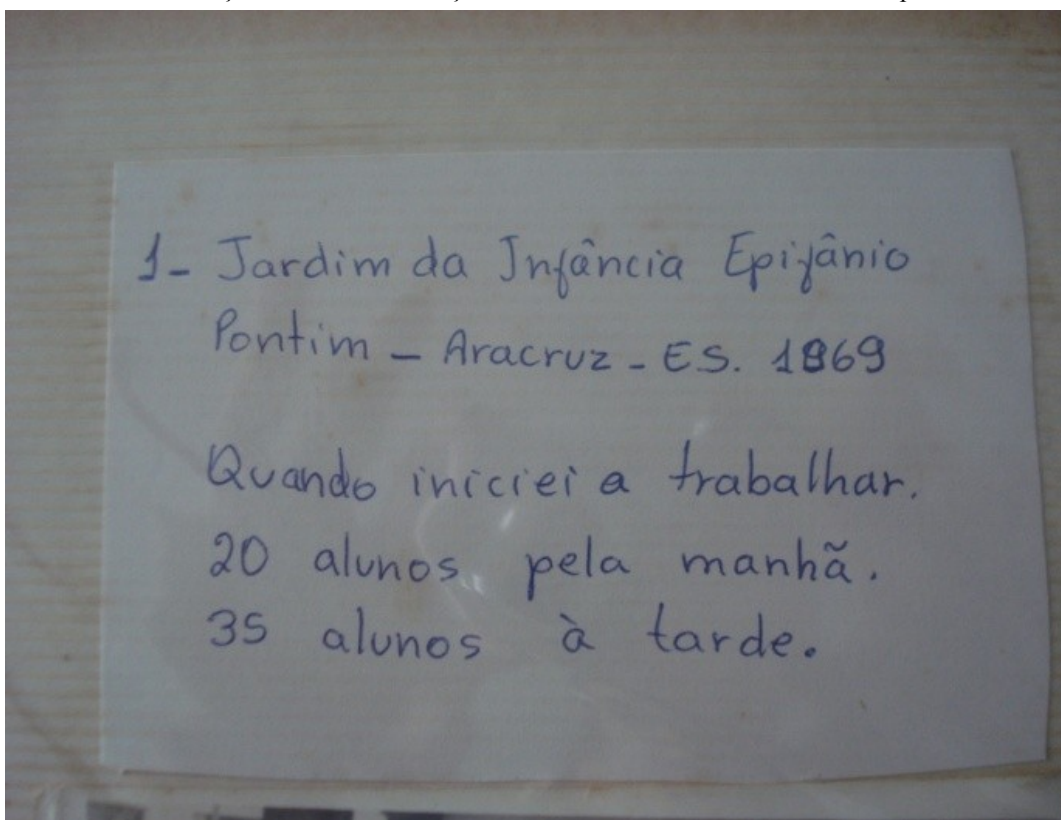 1- Jardim da Infância Epifânio
Pontim - Aracruz - ES. 1969
Quando iniciei a trabalhar.
20 alunos pela manhã.
35 alunos à tarde.